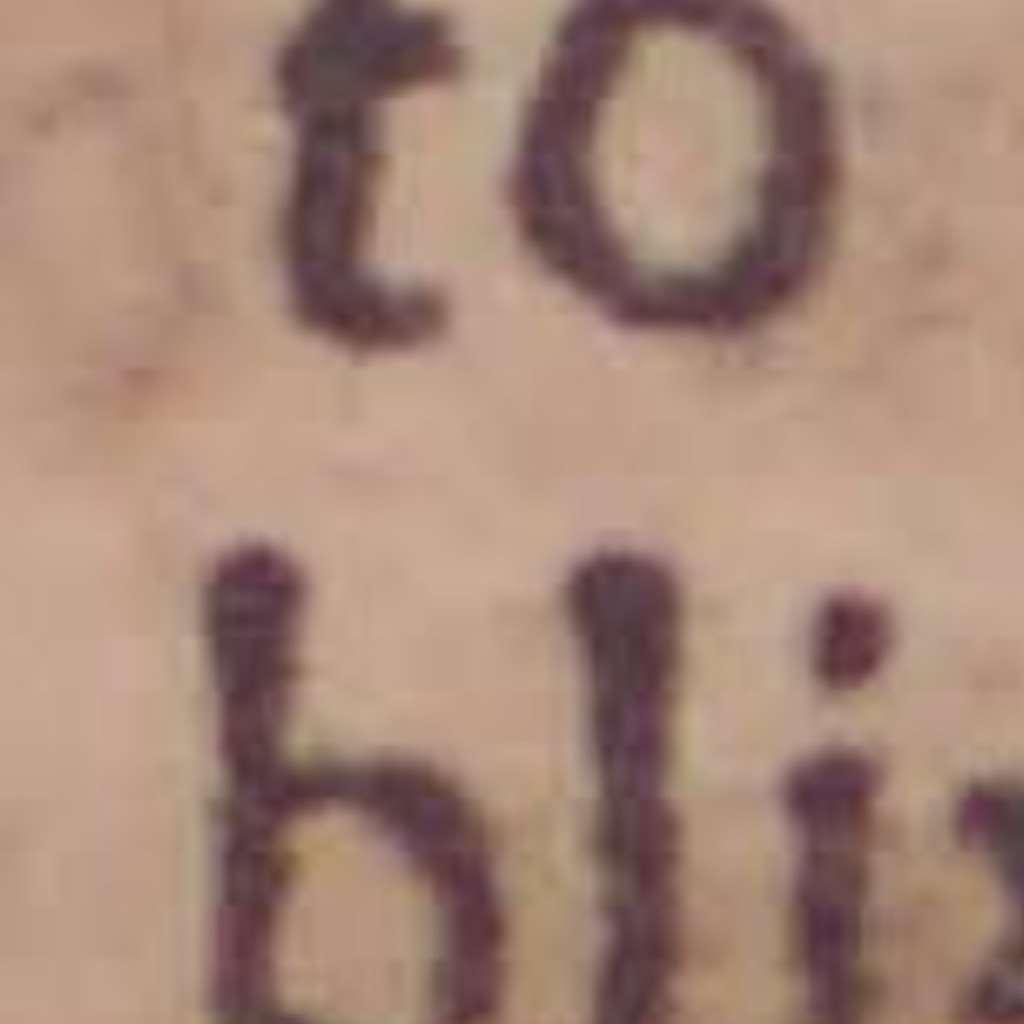 to
bli